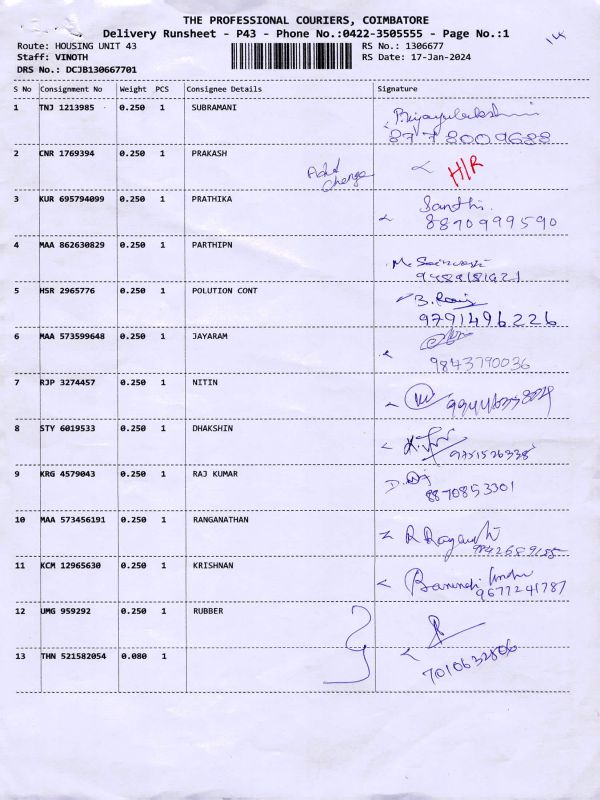 THE PROFESSIONAL COURIERS, COIMBATORE
Delivery Runsheet - P43 - Phone No.:0422-3505555 - Page No.:1
Route: HOUSING UNIT 43 RS No.: 1306677
Staff: VINOTH RS Date: 17-Jan-2024
DRS No.: DCJB130667701
S No Consignment No Weight PCS Consignee Details Signature
1 TNJ 1213985 0.250 1 SUBRAMANI
8778009688
2 CNR 1769394 0.250 1 PRAKASH H/R
3 KUR 695794099 0.250 1 PRATHIKA Santhi
8870999590
4 MAA 862630829 0.250 1 PARTHIPN
9489181621
5 HSR 2965776 0.250 1 POLUTION CONT
9791496226
6 MAA 573599648 0.250 1 JAYARAM
9843790036
7 RJP 3274457 0.250 1 NITIN
8 STY 6019533 0.250 1 DHAKSHIN
9751526338
9 KRG 4579043 0.250 1 RAJ KUMAR
8870853301
10 MAA 573456191 0.250 1 RANGANATHAN
11 KCM 12965630 0.250 1 KRISHNAN
9677241787
12 UMG 959292 0.250 1 RUBBER
13 THN 521582054 0.080 1
7010632806